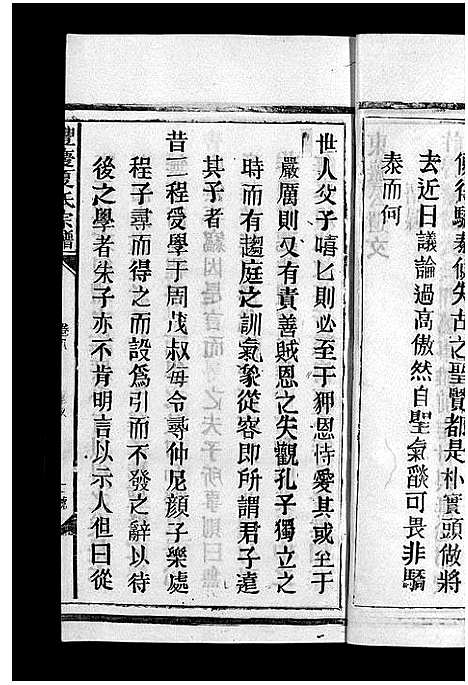 倏得驕泰倏失古之聖賢都是朴實頭做將
去近日議論過高傲然自聖氣燄可畏非驕
泰而何
世人父子嘻匕則必至于狎恩恃愛其或至于
嚴厲則又有責善賊恩之失觀孔子獨立之
時而有趨庭之訓氣象從容卽所謂君子遠
其子者
昔二程受學于周茂叔每令尋仲尼顏子樂處
程子尋而得之而設爲引而不發之辭以待
後之學者朱子亦不肯明言以示人但曰從
豐慶夏氏宗譜
卷